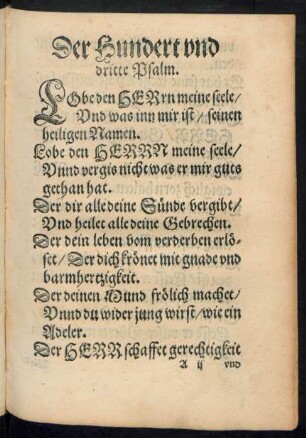 Der Hundert vnd
dritte Psalm.
LObe den HERrn meine seele/
Vnd was inn mir ist/ seinen
heiligen Namen.
Lobe den HERRN meine seele/
Vnnd vergis nicht was er mir guts
gethan hat.
Der dir alle deine Sünde vergibt/
Vnd heilet alle deine Gebrechen.
Der dein leben vom verderben erlö-
set/ Der dich krönet mit gnade vnd
barmhertzigkeit.
Der deinen Mund frölich machet/
Vnnd du wider jung wirst/ wie ein
Adeler.
Der HERR schaffet gerechtigkeit
A ij vnd